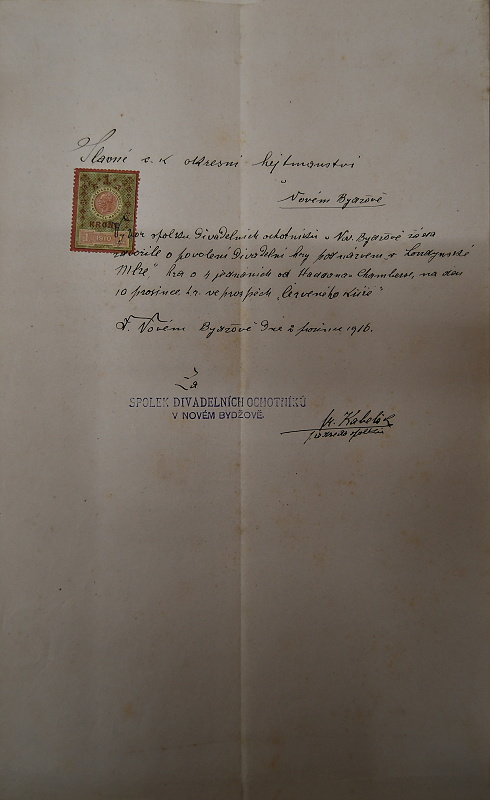 Slavné c. k. okresní hejtmanství
v
Novém Bydžově
1910
spolku divadelních ochotníků v Nov. Bydžově žádá
o povolení divadelní hry pod názvem „Londýnské
mlze" hra o 4 jednáních od Haddona-Chambersa, na den
10 prosince t.r. ve prospěch „Červeného kříže"
V Novém Bydžově dne 2 prosince 1916.
Za
SPOLEK DIVADELNÍCH OCHOTNÍKŮ
V NOVÉM BYDŽOVĚ.